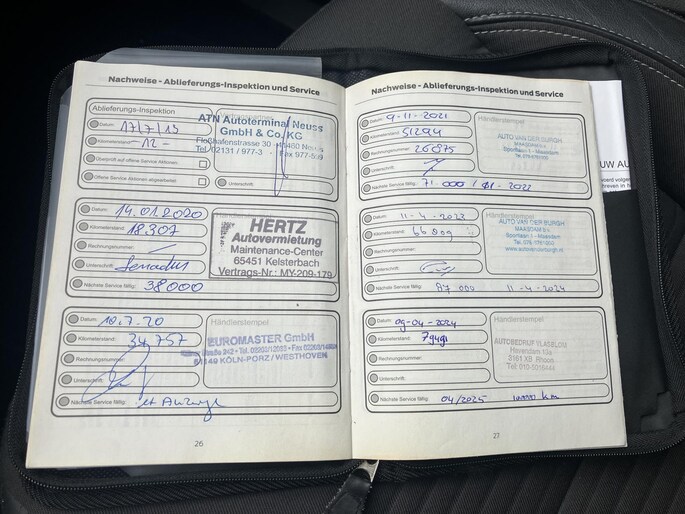 Nachweise - Ablieferungs-Inspektion und Service
Ablieferungs-Inspektion
Datum: 17/7/19
Kilometerstand: -12-
Überprüft auf offene Service Aktionen:
Offene Service Aktionen abgearbeitet:
ATN Autoterminal Neuss
GmbH & Co. KG
Floßhafenstrasse 30 · 41460 Neuss
Tel. 02131 / 977-3
Unterschrift:
Datum: 14.01.2020
Kilometerstand: 18.307
Rechnungsnummer: -
Unterschrift:
Nächste Service fällig: 38000
HERTZ
Autovermietung
Maintenance-Center
65451 Kelsterbach
Vertrags-Nr.: MY-209-179
Datum: 10.7.20
Kilometerstand: 34.757
Rechnungsnummer:
Unterschrift:
Nächste Service fällig:
Händlerstempel
EUROMASTER GmbH
51149 KÖLN-PORZ / WESTHOVEN
26
Nachweise - Ablieferungs-Inspektion und Service
Datum: 9-11-2021
Kilometerstand: 51294
Rechnungsnummer: 26875
Unterschrift:
Nächste Service fällig: 71.000 /
Händlerstempel
AUTO VAN DER BURGH
MAASDAM b.v.
Sportlaan 1 - Maasdam
Datum: 11-4-2023
Kilometerstand:
Rechnungsnummer:
Unterschrift:
Nächste Service fällig: 87 000 11-4-2024
AUTO VAN DER BURGH
MAASDAM b.v.
Sportlaan 1 - Maasdam
Datum: 09-04-2024
Kilometerstand:
Rechnungsnummer:
Unterschrift:
Nächste Service fällig: 04/2025 km
Händlerstempel
AUTOBEDRIJF VLASBLOM
Havendam 13a
3161 XB Rhoon
27